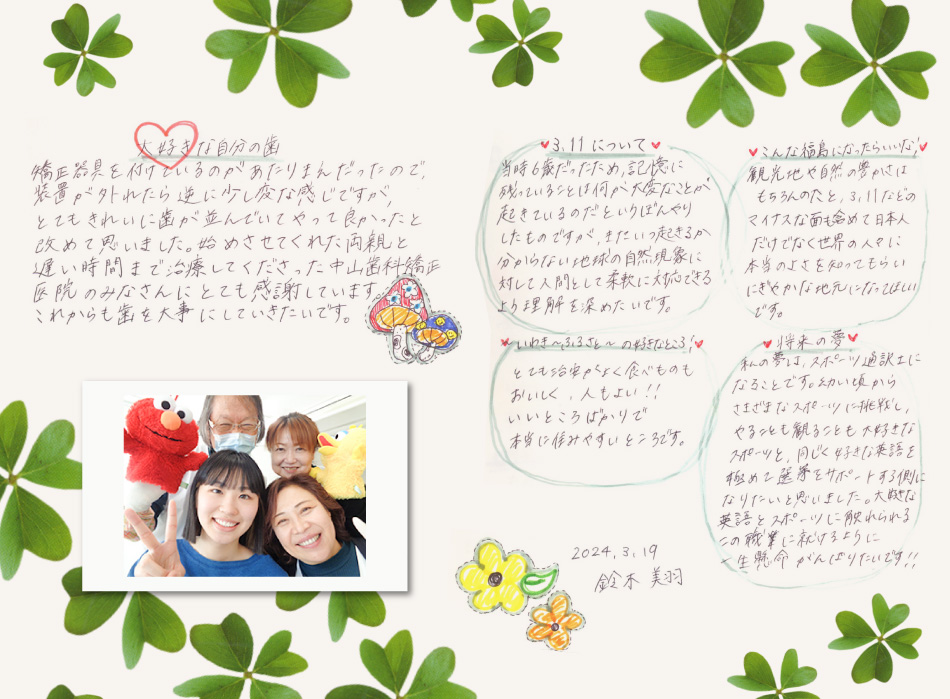 大好きな自分の歯
矯正器具を付けているのがあたりまえだったので、
装置が外れたら逆に少し変な感じですが、
とてもきれいに歯が並んでいてやって良かったと
改めて思いました。始めさせてくれた両親と
遅い時間まで治療してくださった中山歯科矯正
医院のみなさんにとても感謝しています。
これからも歯を大事にしていきたいです。
3.11について
当時6歳だったため、記憶に
残っていることは何か大変なことが
起きているのだというぼんやり
したものですが、またいつ起きるか
分からない地球の自然現象に
対して人間として柔軟に対応できる
よう理解を深めたいです。
こんな福島になったらいいな!
観光地や自然の豊かさは
もちろんのこと、3.11などの
マイナスな面も含めて日本人
だけでなく世界の人々に
本当のよさを知ってもらい
にぎやかな地元になってほしい
です。
いわき〜ふるさと〜の好きなところ!
とても治安がよく食べものも
おいしく、人もよい!!
いいところばかりで
本当に住みやすいところです。
将来の夢
私の夢は、スポーツ通訳士に
なることです。幼い頃から
さまざまなスポーツに挑戦し、
やることも観ることも大好きな
スポーツと、同じく好きな英語を
極めて選手をサポートする側に
なりたいと思いました。大好きな
英語とスポーツに触れられる
この職業に就けるように
一生懸命がんばりたいです!!
2024.3.19
鈴木 美羽